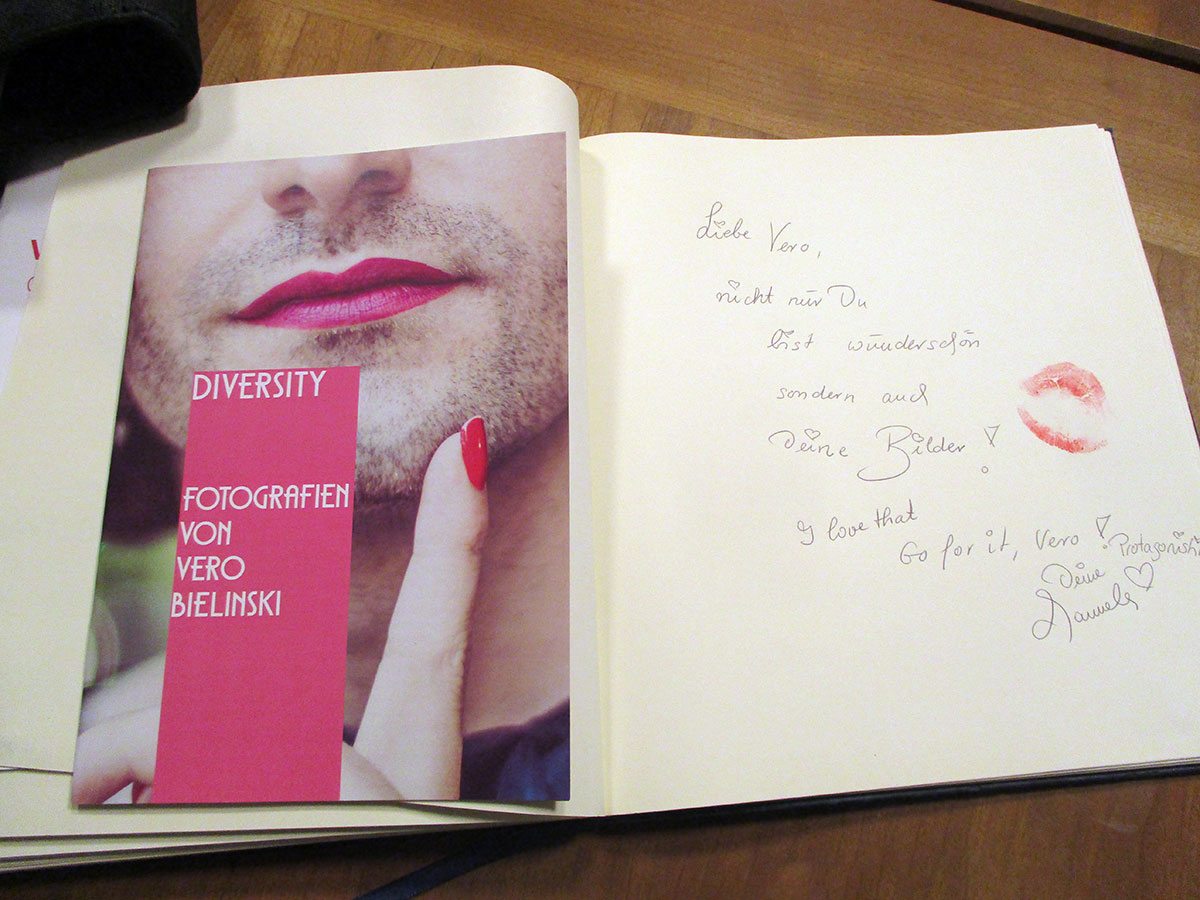 DIVERSITY
FOTOGRAFIEN
VON
VERO
BIELINSKI
Liebe Vero,
nicht nur Du
bist wunderschön
sondern auch
Deine Bilder!
I love that
Go for it, Vero!
Protagonisti
Deine